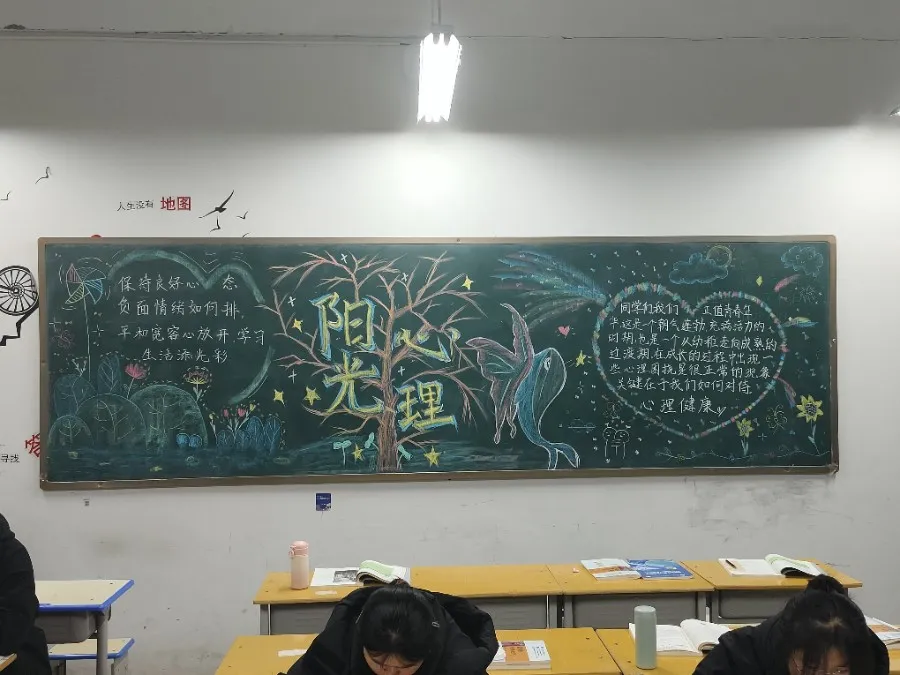 人生没有 地图
寻找
保持良好心 态
负面情绪如何排
平和宽容心放开 学习
生活添光彩
阳光
心理
同学们我们 正值青春年
华这是一个朝气蓬勃充满活力的
时期,也是一个从幼稚走向成熟的
过渡期,在成长的过程中出现一
些心理困扰是很正常的现象
关键在于我们如何对待
心理健康